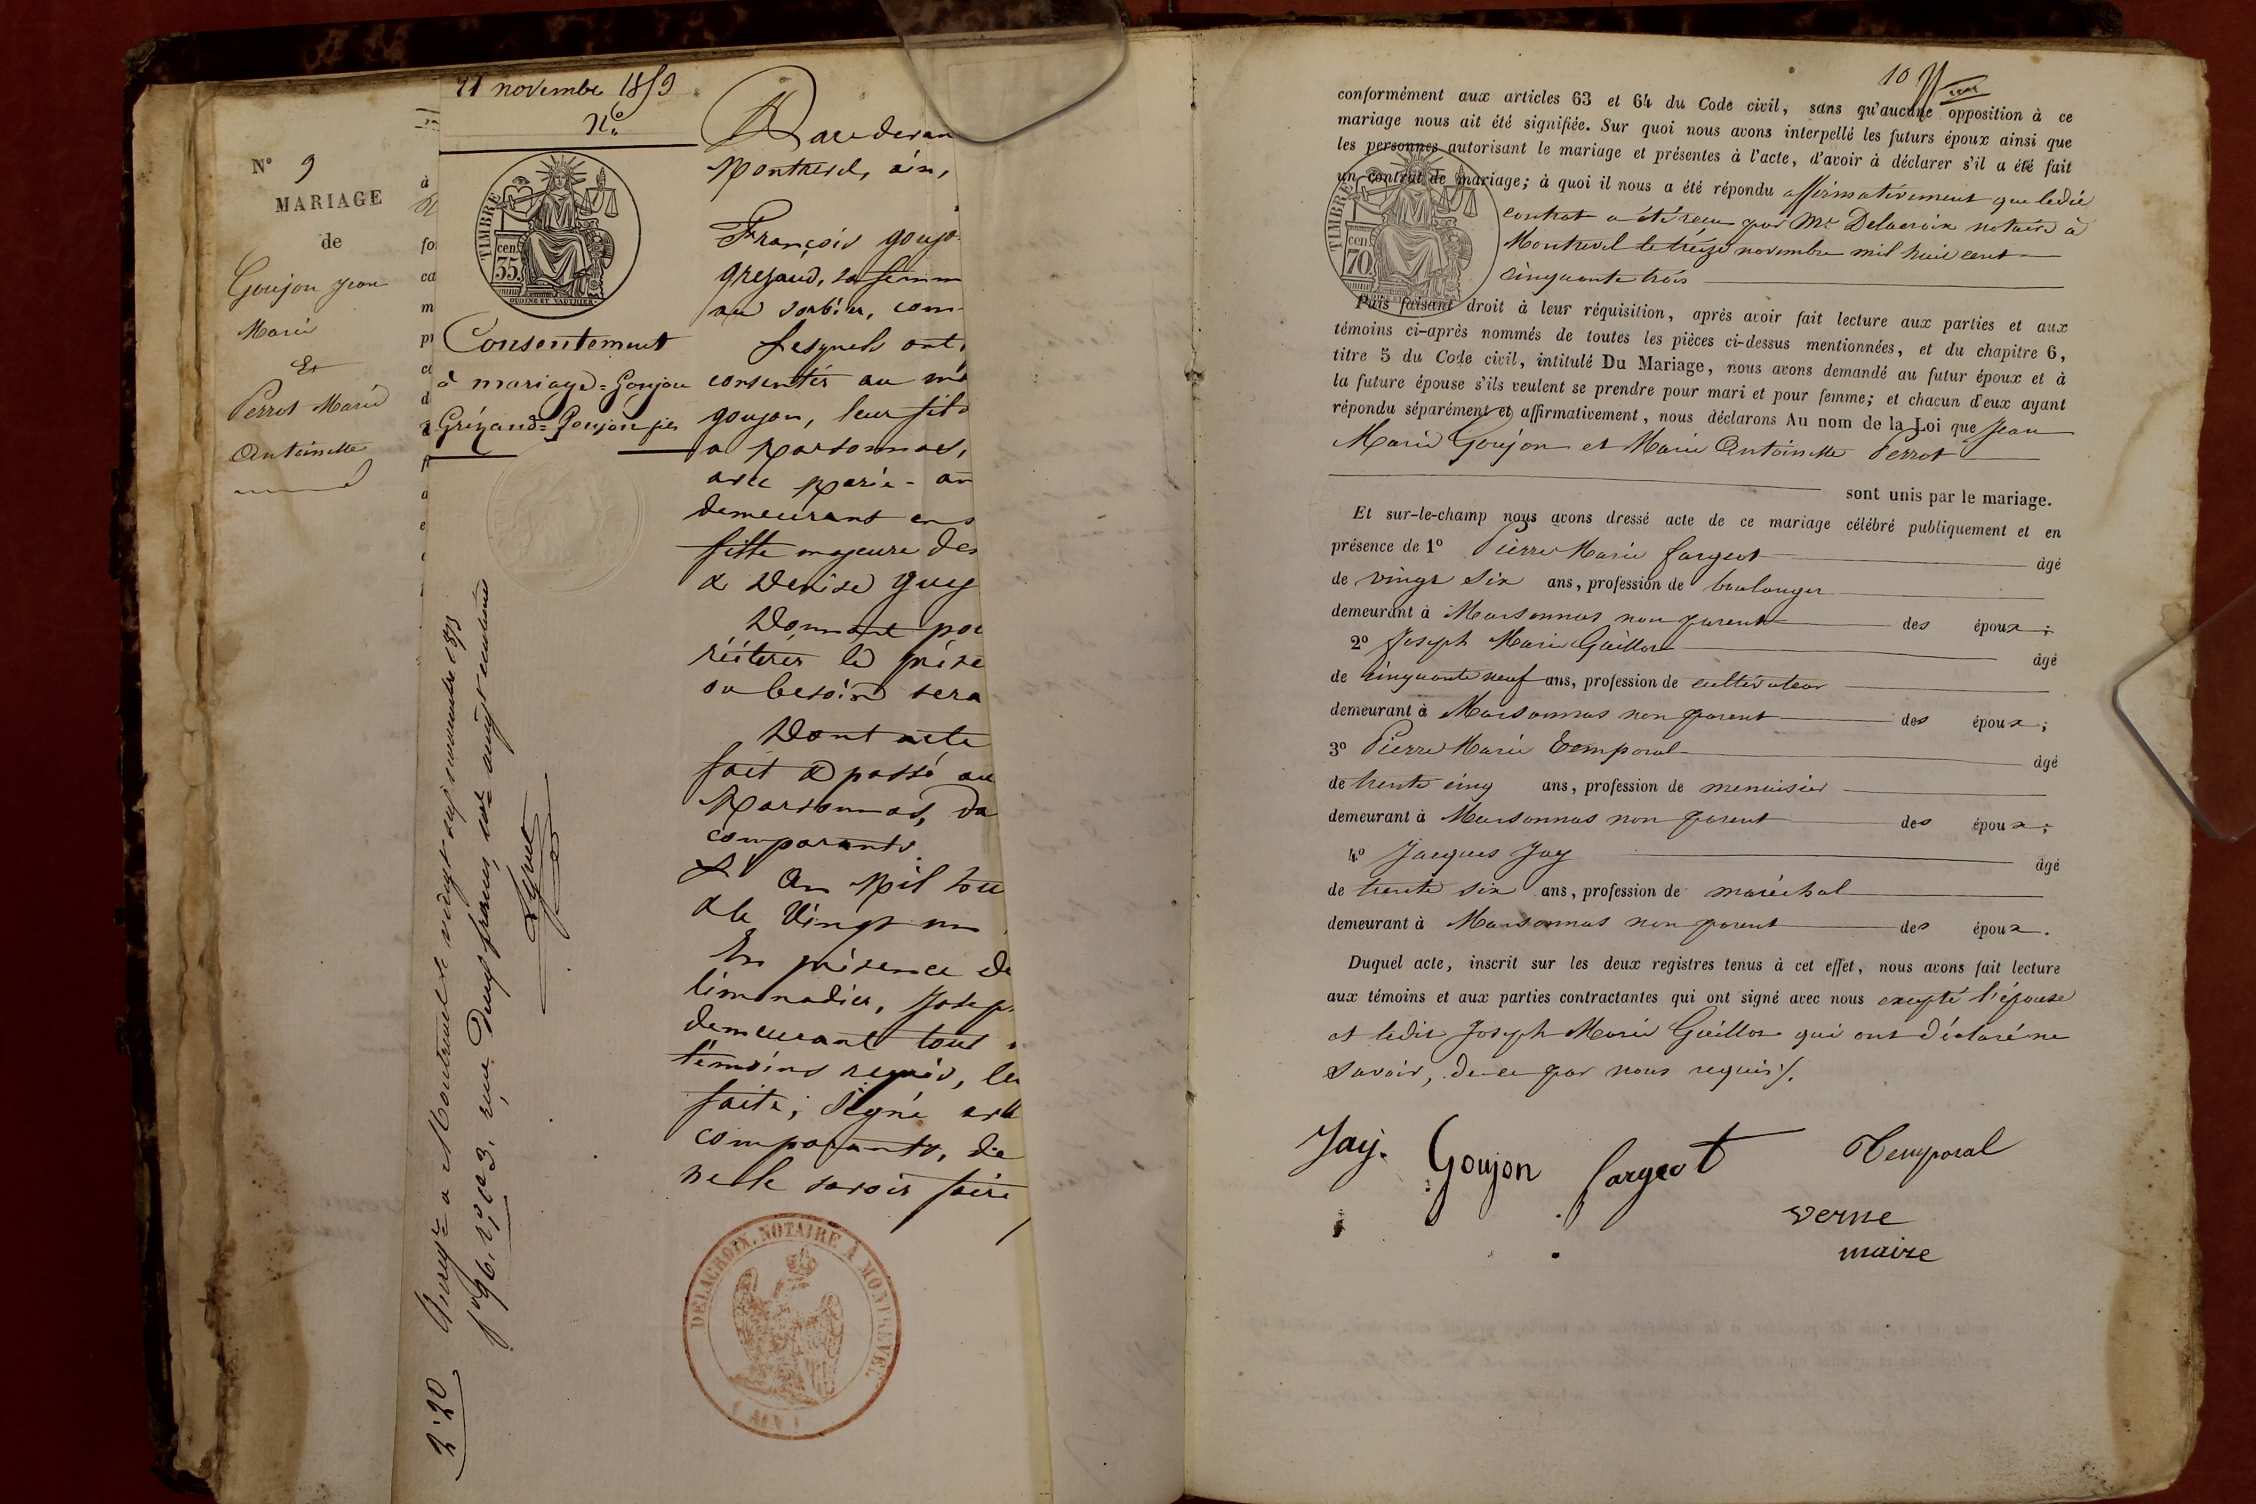 N° 9
MARIAGE
de
Goujon Jean
Marie
Et
Perrot Marie
Antoinette
21 novembre 1853
N°
TIMBRE
cen.
35.
Consentement
à mariage = Goujon
Grézaud = Goujon fils
Pardevan
Montrevel, ain,
François goujo
grezaud, sa femm
au sorbier, com
Lesquels ont
consentir au m
goujon, leur fils
a Marsonnas,
avec Marie - an
demeurant en s
fille majeure des
& Denise guy
Donnant po
réitérer le prése
ou besoin sera
Dont acte
fait & passé au
Marsonnas, da
comparants
L'an Mil hui
& le Vingt un
En présence de
limonadier, Josep
demeurant tous
témoins requis, le
faite, signé ave
comparants, de
ne le savoir faire
Enregé à Montrevel le vingt sept novembre 1853
fo 96. Ro c 3. reçu Deux francs, et vingt centimes
2.20
DELACROIX, NOTAIRE A MONTREVEL
(AIN)
10
conformément aux articles 63 et 64 du Code civil, sans qu'aucune opposition à ce
mariage nous ait été signifiée. Sur quoi nous avons interpellé les futurs époux ainsi que
les personnes autorisant le mariage et présentes à l'acte, d'avoir à déclarer s'il a été fait
un contrat de mariage; à quoi il nous a été répondu affirmativement que ledit
contrat a été reçu par Me Delacroix notaire à
Montrevel le treize novembre mil huit cent
cinquante trois
TIMBRE
cen.
70.
Puis faisant droit à leur réquisition, après avoir fait lecture aux parties et aux
témoins ci-après nommés de toutes les pièces ci-dessus mentionnées, et du chapitre 6,
titre 5 du Code civil, intitulé Du Mariage, nous avons demandé au futur époux et à
la future épouse s'ils veulent se prendre pour mari et pour femme; et chacun d'eux ayant
répondu séparément et affirmativement, nous déclarons Au nom de la Loi que Jean
Marie Goujon et Marie Antoinette Perrot
sont unis par le mariage.
Et sur-le-champ nous avons dressé acte de ce mariage célébré publiquement et en
présence de 1° Pierre Marie Fargeot âgé
de vingt six ans, profession de boulanger
demeurant à Marsonnas non parent des époux;
2° Joseph Marie Guillot âgé
de cinquante neuf ans, profession de cultivateur
demeurant à Marsonnas non parent des époux;
3° Pierre Marie Temporal âgé
de trente cinq ans, profession de menuisier
demeurant à Marsonnas non parent des époux;
4° Jacques Jay âgé
de trente six ans, profession de maréchal
demeurant à Marsonnas non parent des époux.
Duquel acte, inscrit sur les deux registres tenus à cet effet, nous avons fait lecture
aux témoins et aux parties contractantes qui ont signé avec nous excepté l'épouse
et ledit Joseph Marie Guillot qui ont déclaré ne
savoir, de ce par nous requis /.
Jay. Goujon fargeot Temporal
verne
maire